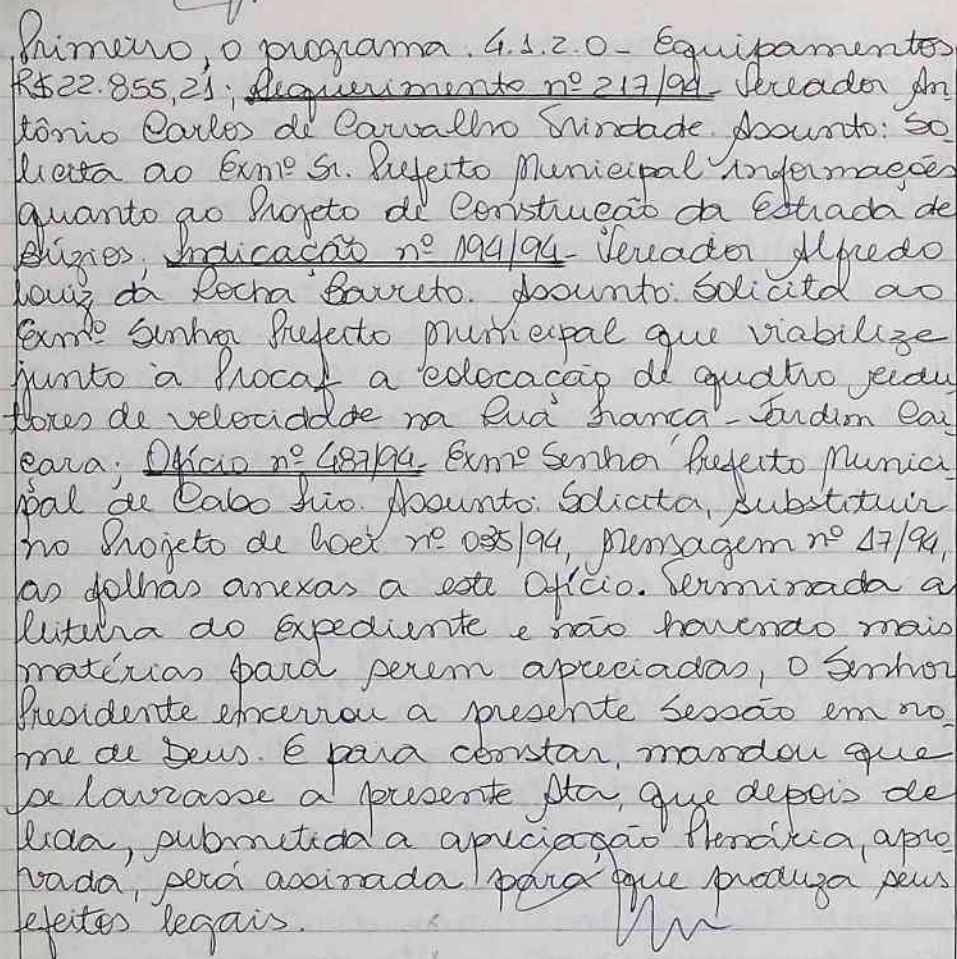 Primeiro, o programa. 4.1.2.0 - Equipamentos
R$22.855,21; Requerimento nº 217/94 - Vereador An
tônio Carlos de Carvalho Trindade. Assunto: So
licita ao Exmº Sr. Prefeito Municipal informações
quanto ao Projeto de Construção da Estrada de
Búzios. Indicação nº 194/94 - Vereador Alfredo
Louiz da Rocha Barreto. Assunto: Solicita ao
Exmº Senhor Prefeito Municipal que viabilize
junto à Procaf a colocação de quatro redu
tores de velocidade na Rua Franca - Jardim Cai
çara; Ofício nº 487/94 - Exmº Senhor Prefeito Munici
pal de Cabo Frio. Assunto: Solicita, substituir
no Projeto de Lei nº 035/94, Mensagem nº 17/94,
as folhas anexas a este Ofício. Terminada a
leitura do Expediente e não havendo mais
matérias para serem apreciadas, o Senhor
Presidente encerrou a presente Sessão em no
me de Deus. E para constar, mandou que
se lavrasse a presente Ata, que depois de
lida, submetida a apreciação Plenária, apro
vada, será assinada para que produza seus
efeitos legais.